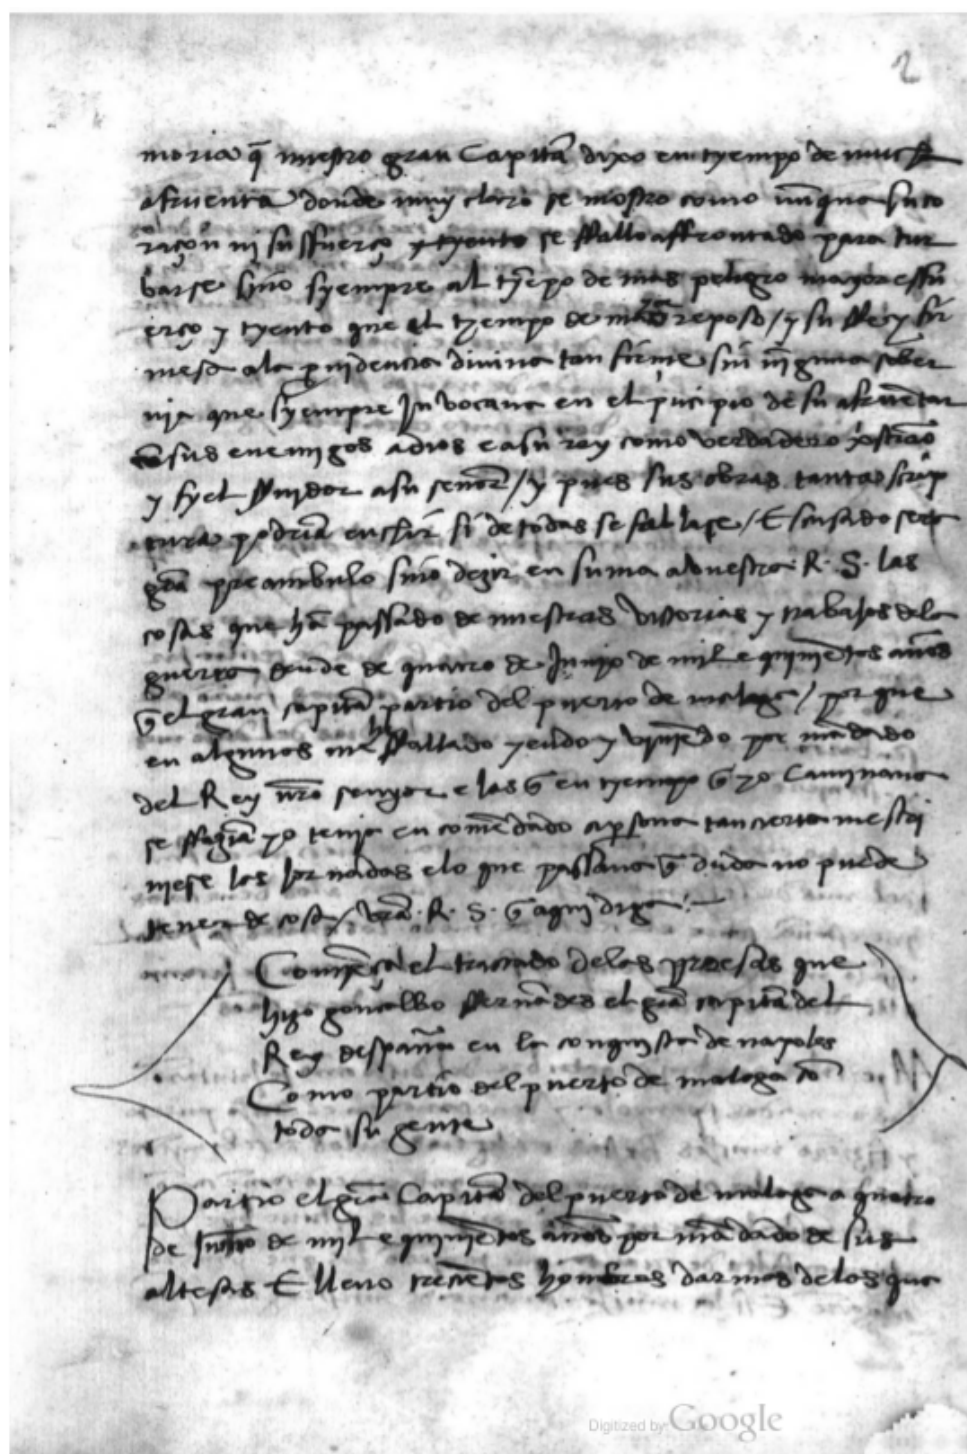 2
moria q̃ nuestro gran Capitã dixo en tyempo de mucha
afruenta donde muy claro se mostro como nũqua su co
raçon ni su sfuerço y tyento se ffallo affrontado para tur
barse sino syempre al tyẽpo de mas peligro mayor essfu
erço y tyento que el tyempo de reposo / y su ffe y fir
mesa ala prouidencia diuina tan firme sin ninguna sober
uia que syempre Inuocaua en el prĩcipio de su afruentar
cõ sus enemigos a dios e a su rey como verdadero xp̃iano
y fyel seruidor a su señor / y pues sus obras tanta scrip
tura podriã enchir si de todas se fablase / Escusado sera
grã preambulo sino dezir en suma a vuestra R. S. las
cosas que hã passado de nuestras victorias y trabajos dela
guerra dende de quatro de Junyo de mil e quiniẽtos años
q̃ el gran capitã partio del puerto de malaga / por que
en algunos me he ffallado yendo y vinyẽdo por mãdado
del Rey nr̃o senyor e las q̃ en tyempo q̃ yo Caminaua
se ffaziã yo tenja encomẽdado a p̃sona tan cierta me scri
uiese las Jornadas e lo que passaua q̃ duda no puede
tener de cosa vr̃a. R. S. q̃ aqui diga:—
Comiẽça el tractado delas proesas que
hizo gonçalbo fernãdes el grã capitã del
Rey despaña en la conquista de napoles
Como partio del puerto de malaga cõ
toda su gente
Partio el grã Capitã del puerto de malaga a quatro
de Junio de mil e quiniẽtos años por mãdado de sus
altesas E lleuo trecẽtos hombres darmas delos que
Digitized by Google